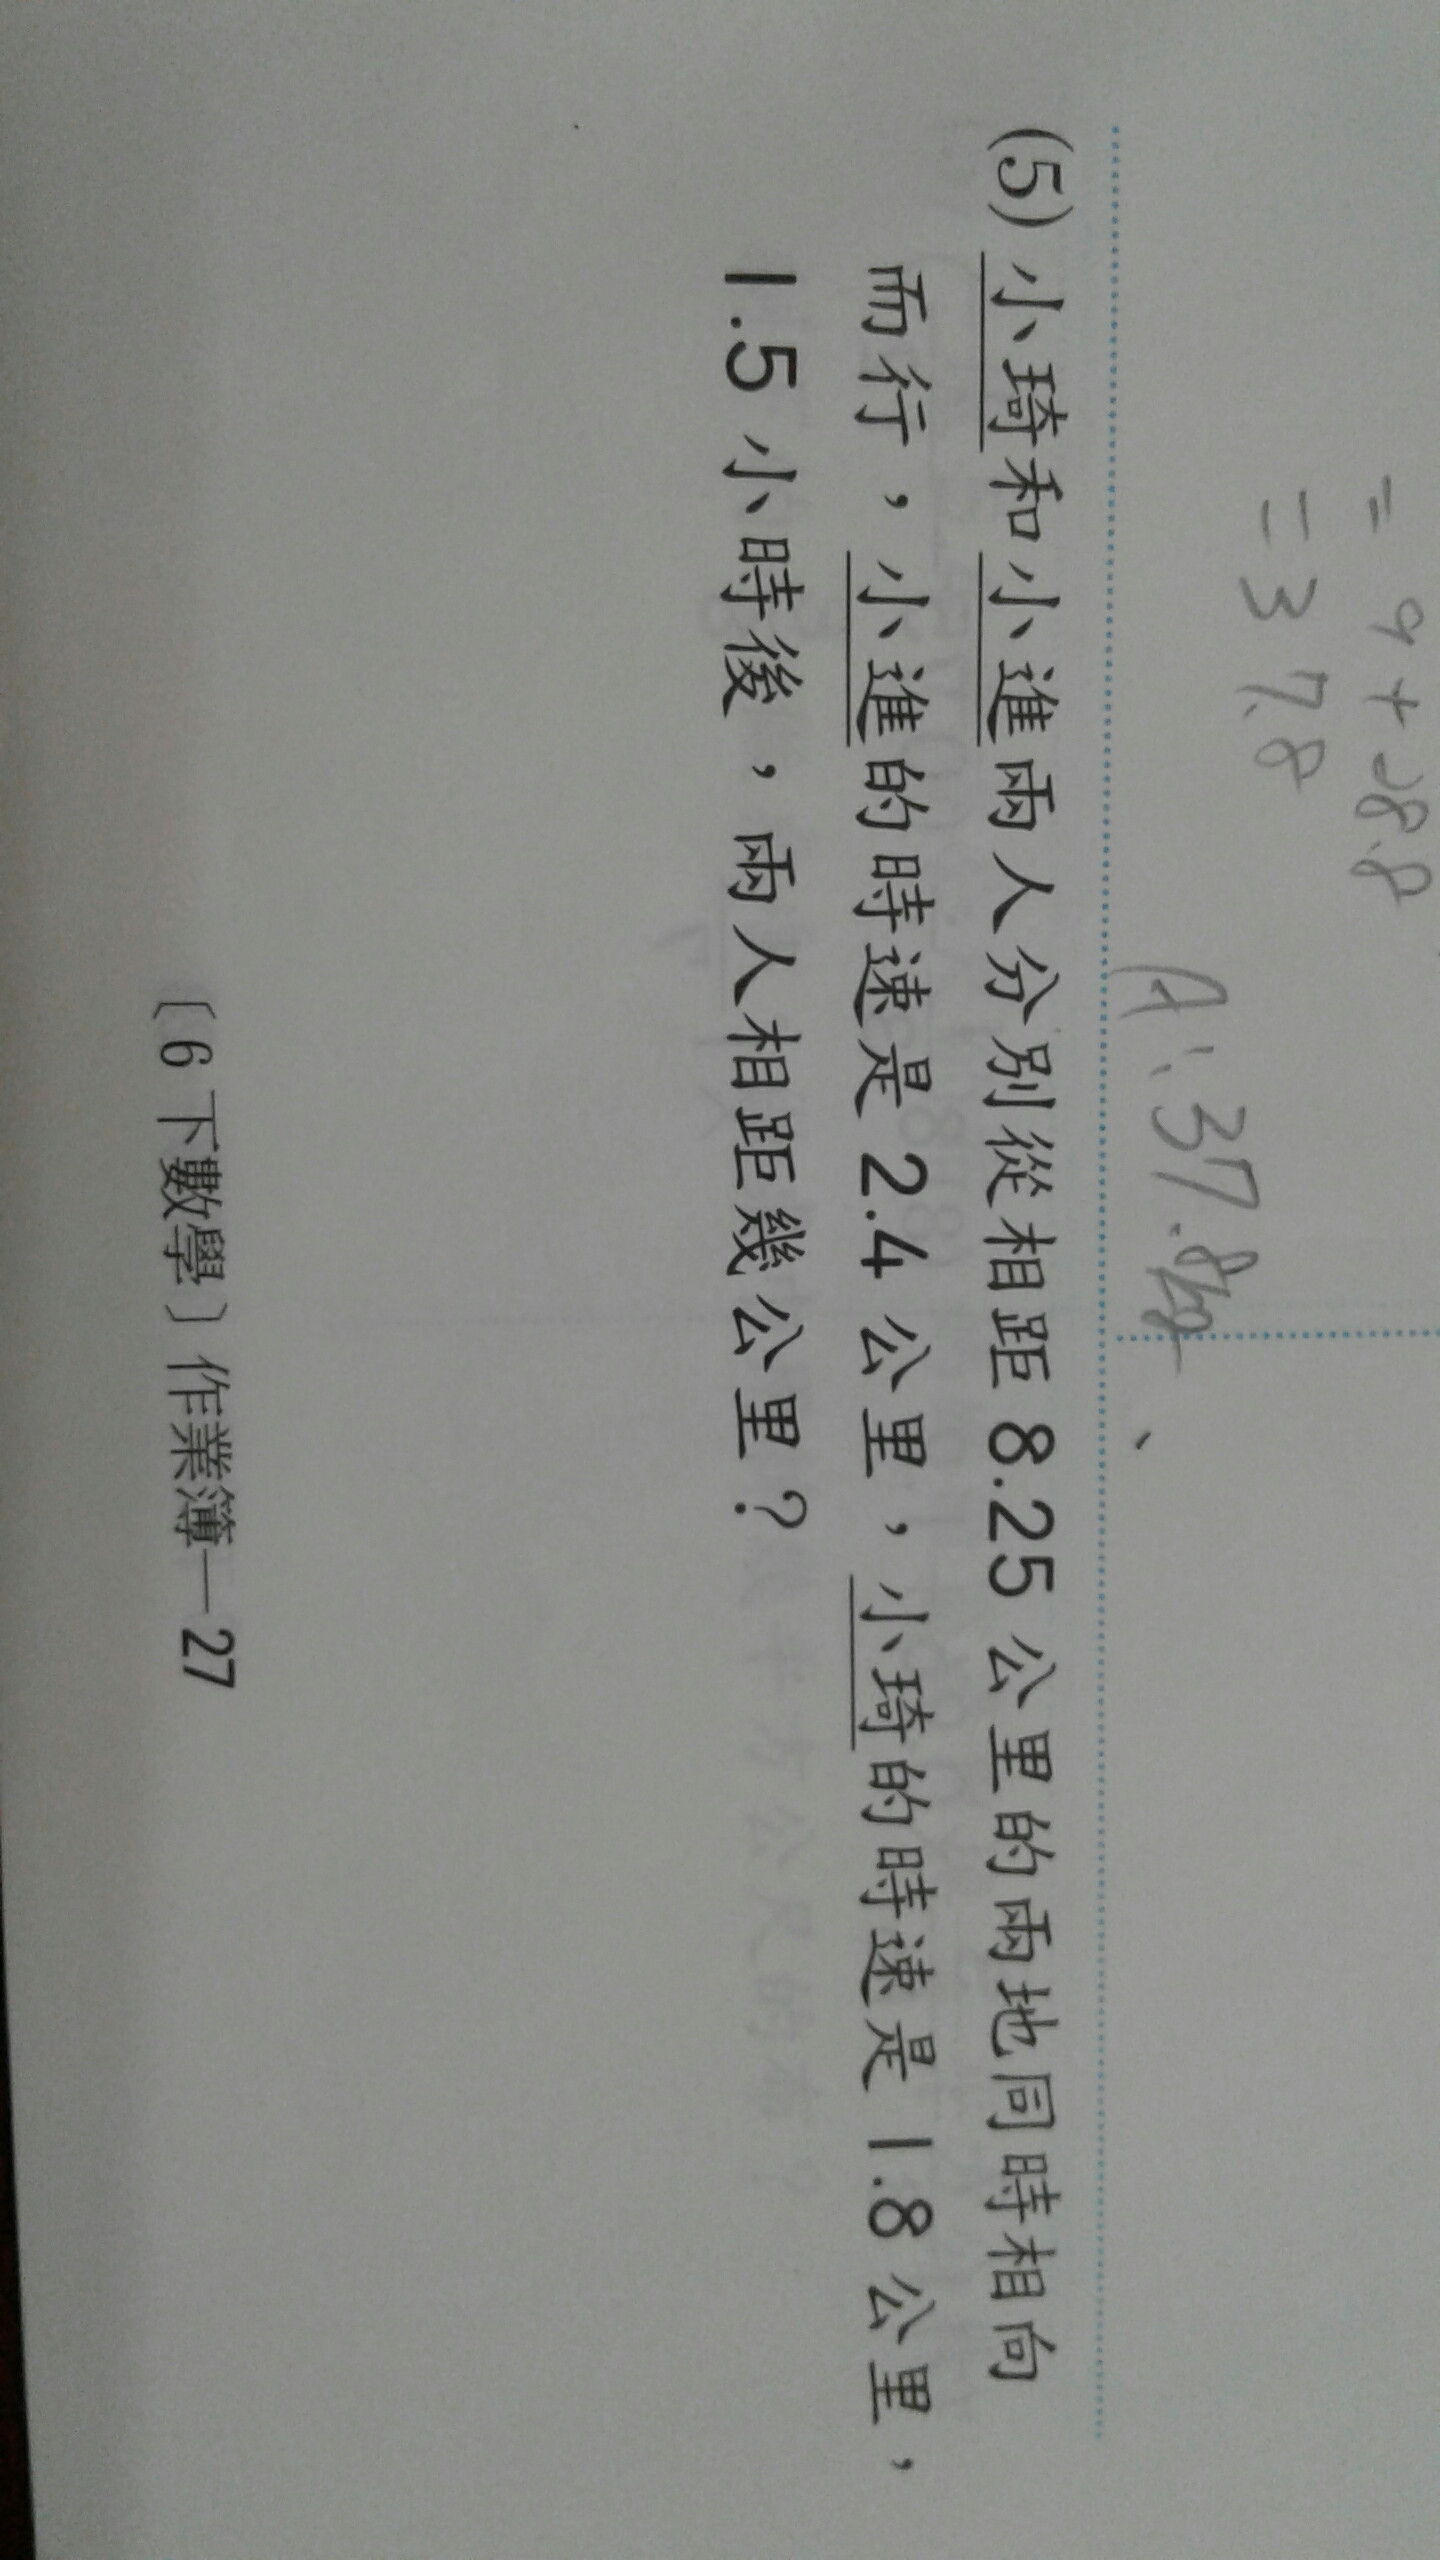 = 9 + 28.8
= 37.8
A: 37.8kg
(5) 小琦和小進兩人分別從相距 8.25 公里的兩地同時相向
而行，小進的時速是 2.4 公里，小琦的時速是 1.8 公里，
1.5 小時後，兩人相距幾公里？
〔6 下數學〕作業簿—27